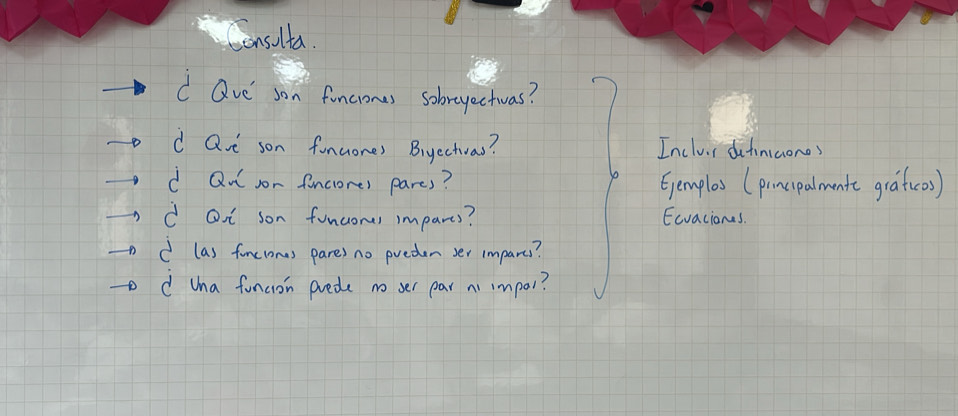 Consulta.
¿ Qué son funciones sobreyectivas?
¿ Qué son funciones Biyectivas?
¿ Qué son funciones pares?
¿ Qué son funciones impares?
¿ las funciones pares no pueden ser impares?
¿ Una función puede no ser par ni impar?
Incluir definiciones
Ejemplos (principalmente gráficos)
Ecuaciones.